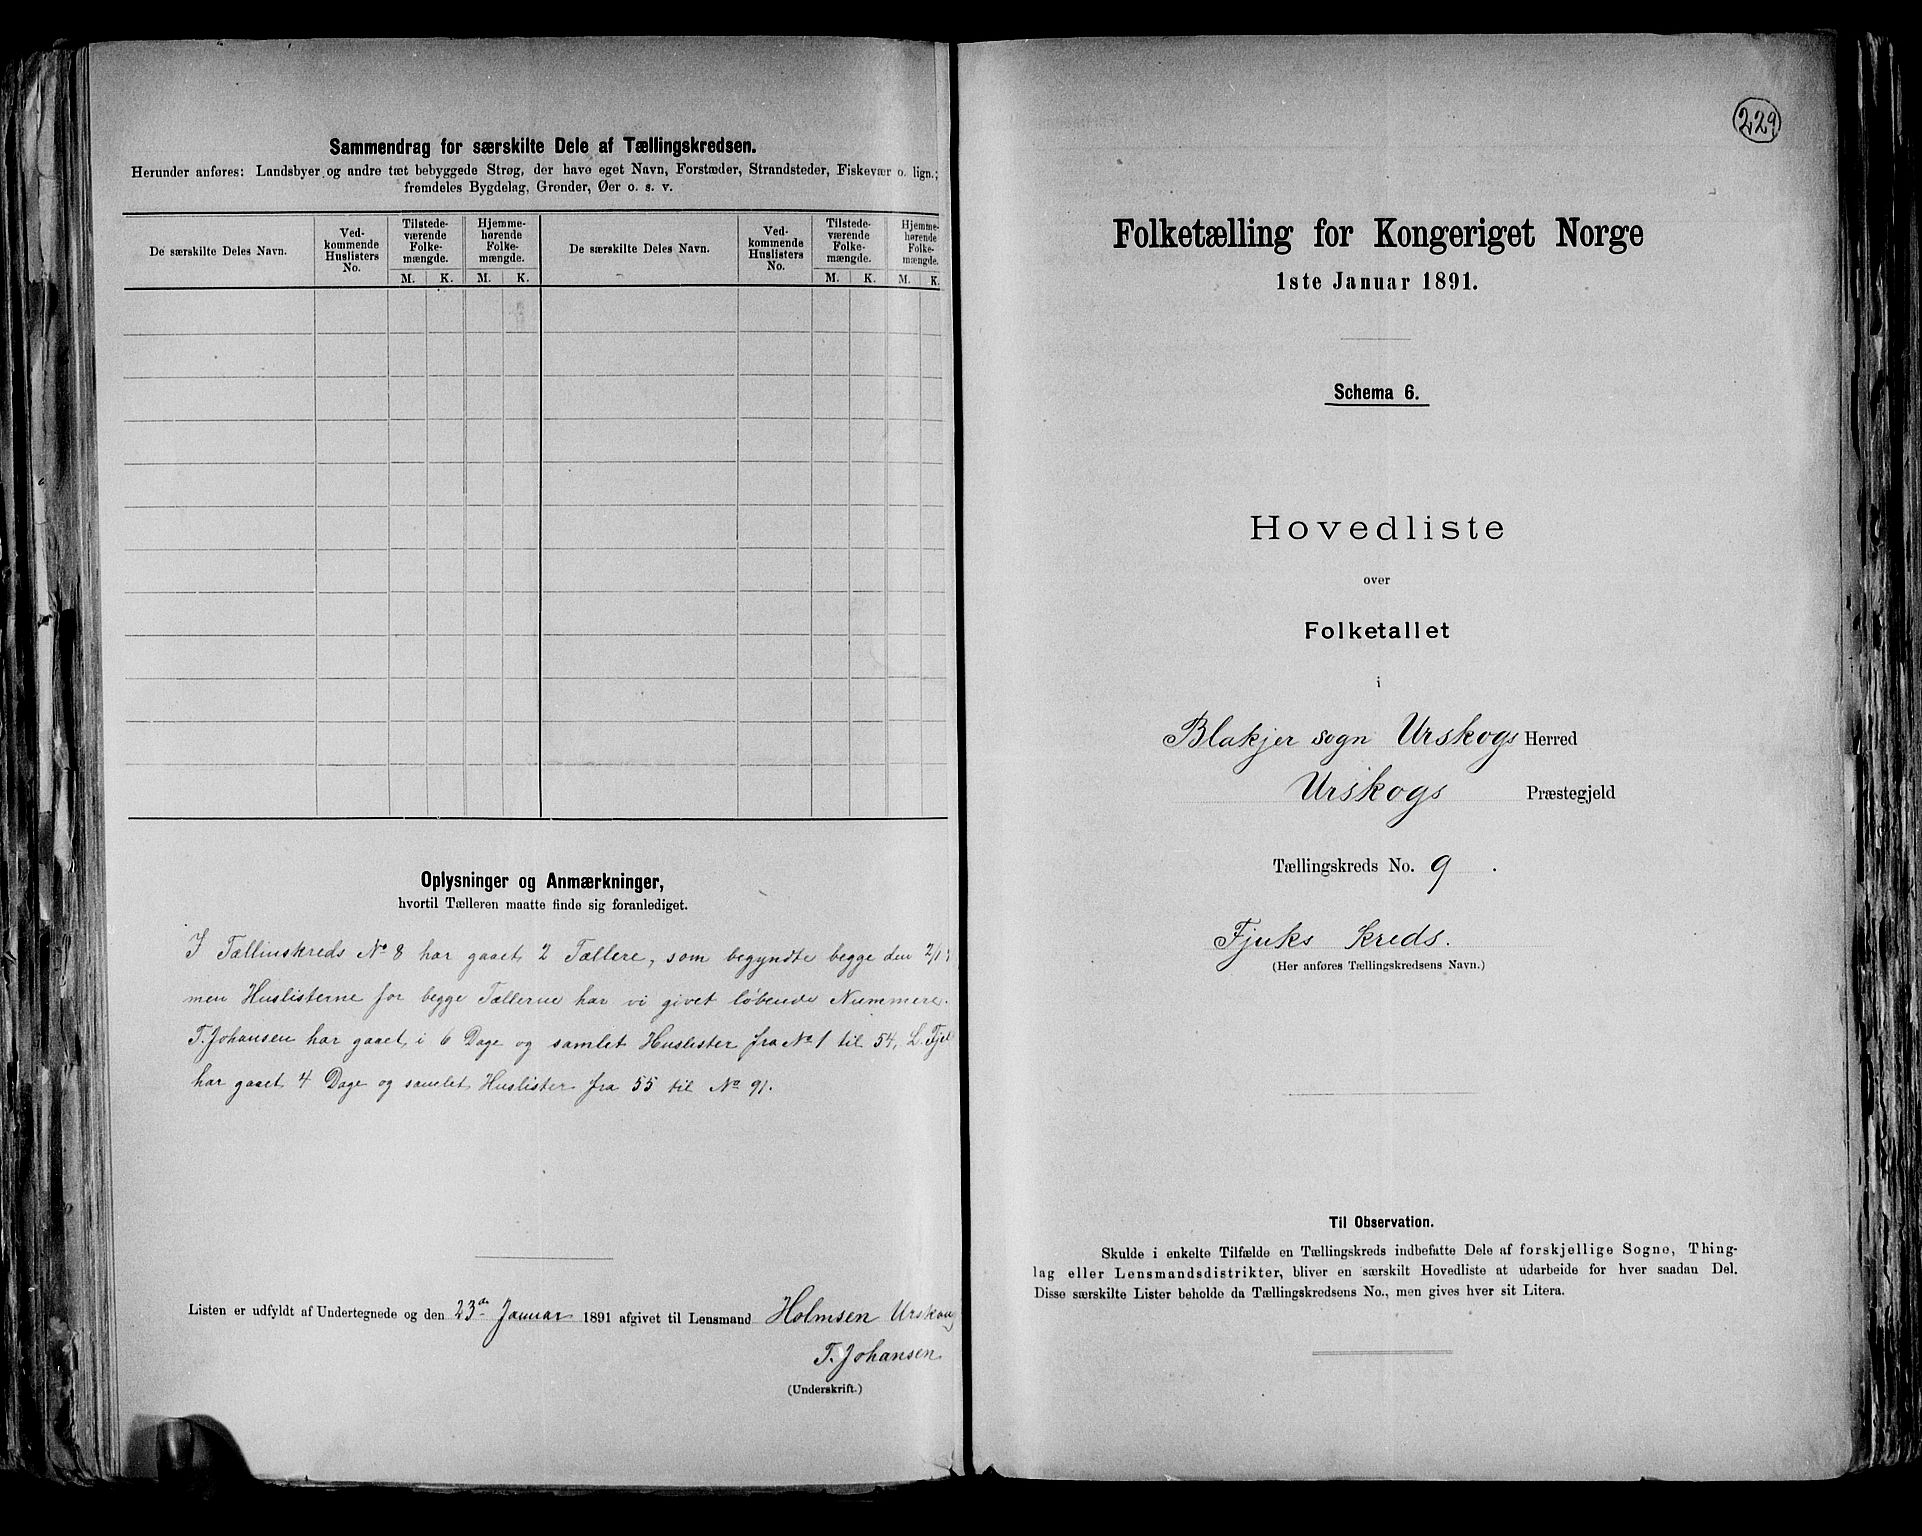 Sammendrag for særskilte Dele af Tællingskredsen.
Herunder anføres: Landsbyer og andre tæt bebyggede Strøg, der have eget Navn, Forstæder, Strandsteder, Fiskevær o. lign.;
fremdeles Bygdelag, Grender, Øer o. s. v.
De særskilte Deles Navn.
Ved-
kommende
Huslisters
No.
Tilstede-
værende
Folke-
mængde.
M. K.
Hjemme-
hørende
Folke-
mængde.
M. K.
De særskilte Deles Navn.
Ved-
kommende
Huslisters
No.
Tilstede-
værende
Folke-
mængde.
M. K.
Hjemme-
hørende
Folke-
mængde.
M. K.
Oplysninger og Anmærkninger,
hvortil Tælleren maatte finde sig foranlediget.
I Tællinskreds No 8 har gaaet 2 Tællere, som begyndte begge den 2/1
men Huslisterne for begge Tællerne har vi givet løbende Nummere.
T. Johansen har gaaet i 6 Dage og samlet Huslister fra No 1 til 54, L.
har gaaet 4 Dage og samlet Huslister fra 55 til No 91.
Listen er udfyldt af Undertegnede og den 23de Januar 1891 afgivet til Lensmand Holmsen Urskoug
T. Johansen
(Underskrift.)
229
Folketælling for Kongeriget Norge
1ste Januar 1891.
Schema 6.
Hovedliste
over
Folketallet
i
Blakjer sogn Urskogs Herred
Urskogs Præstegjeld
Tællingskreds No. 9.
Fjuks Kreds.
(Her anføres Tællingskredsens Navn.)
Til Observation.
Skulde i enkelte Tilfælde en Tællingskreds indbefatte Dele af forskjellige Sogne, Thing-
lag eller Lensmandsdistrikter, bliver en særskilt Hovedliste at udarbeide for hver saadan Del.
Disse særskilte Lister beholde da Tællingskredsens No., men gives hver sit Litera.